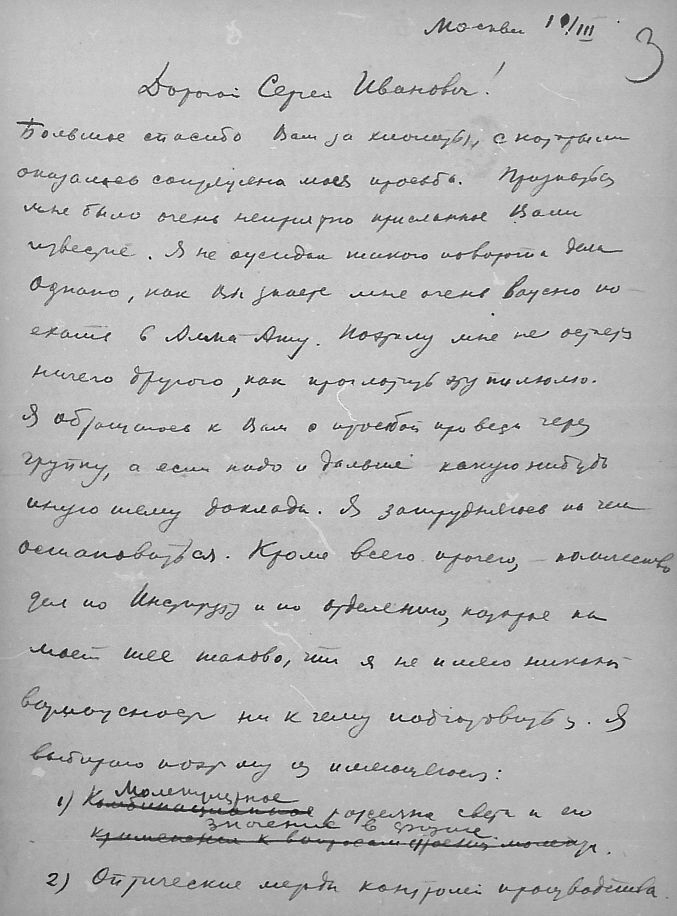 Москва 10/III
3
Дорогой Сергей Иванович!
Большое спасибо Вам за хлопоты, с которыми
оказалась сопряжена моя просьба. Признаться
мне было очень неприятно присланное Вами
известие. Я не ожидал такого поворота дела
Однако, как Вы знаете мне очень важно по-
ехать в Алма-Ату. Поэтому мне не остается
ничего другого, как проглотить эту пилюлю.
Я обращаюсь к Вам с просьбой провести через
группу, а если надо и дальше какую нибудь
иную тему доклада. Я затрудняюсь на чем
остановиться. Кроме всего прочего, – количество
дел по Институту и по отделению, которое на
моей шее таково, что я не имею никакой
возможности ни к чему подготовиться. Я
выбираю поэтому из имеющегося:
1) Комбинационное Молекулярное рассеяние света и его
применения к вопросам строения молекул. значение в физике.
2) Оптические методы контроля производства.